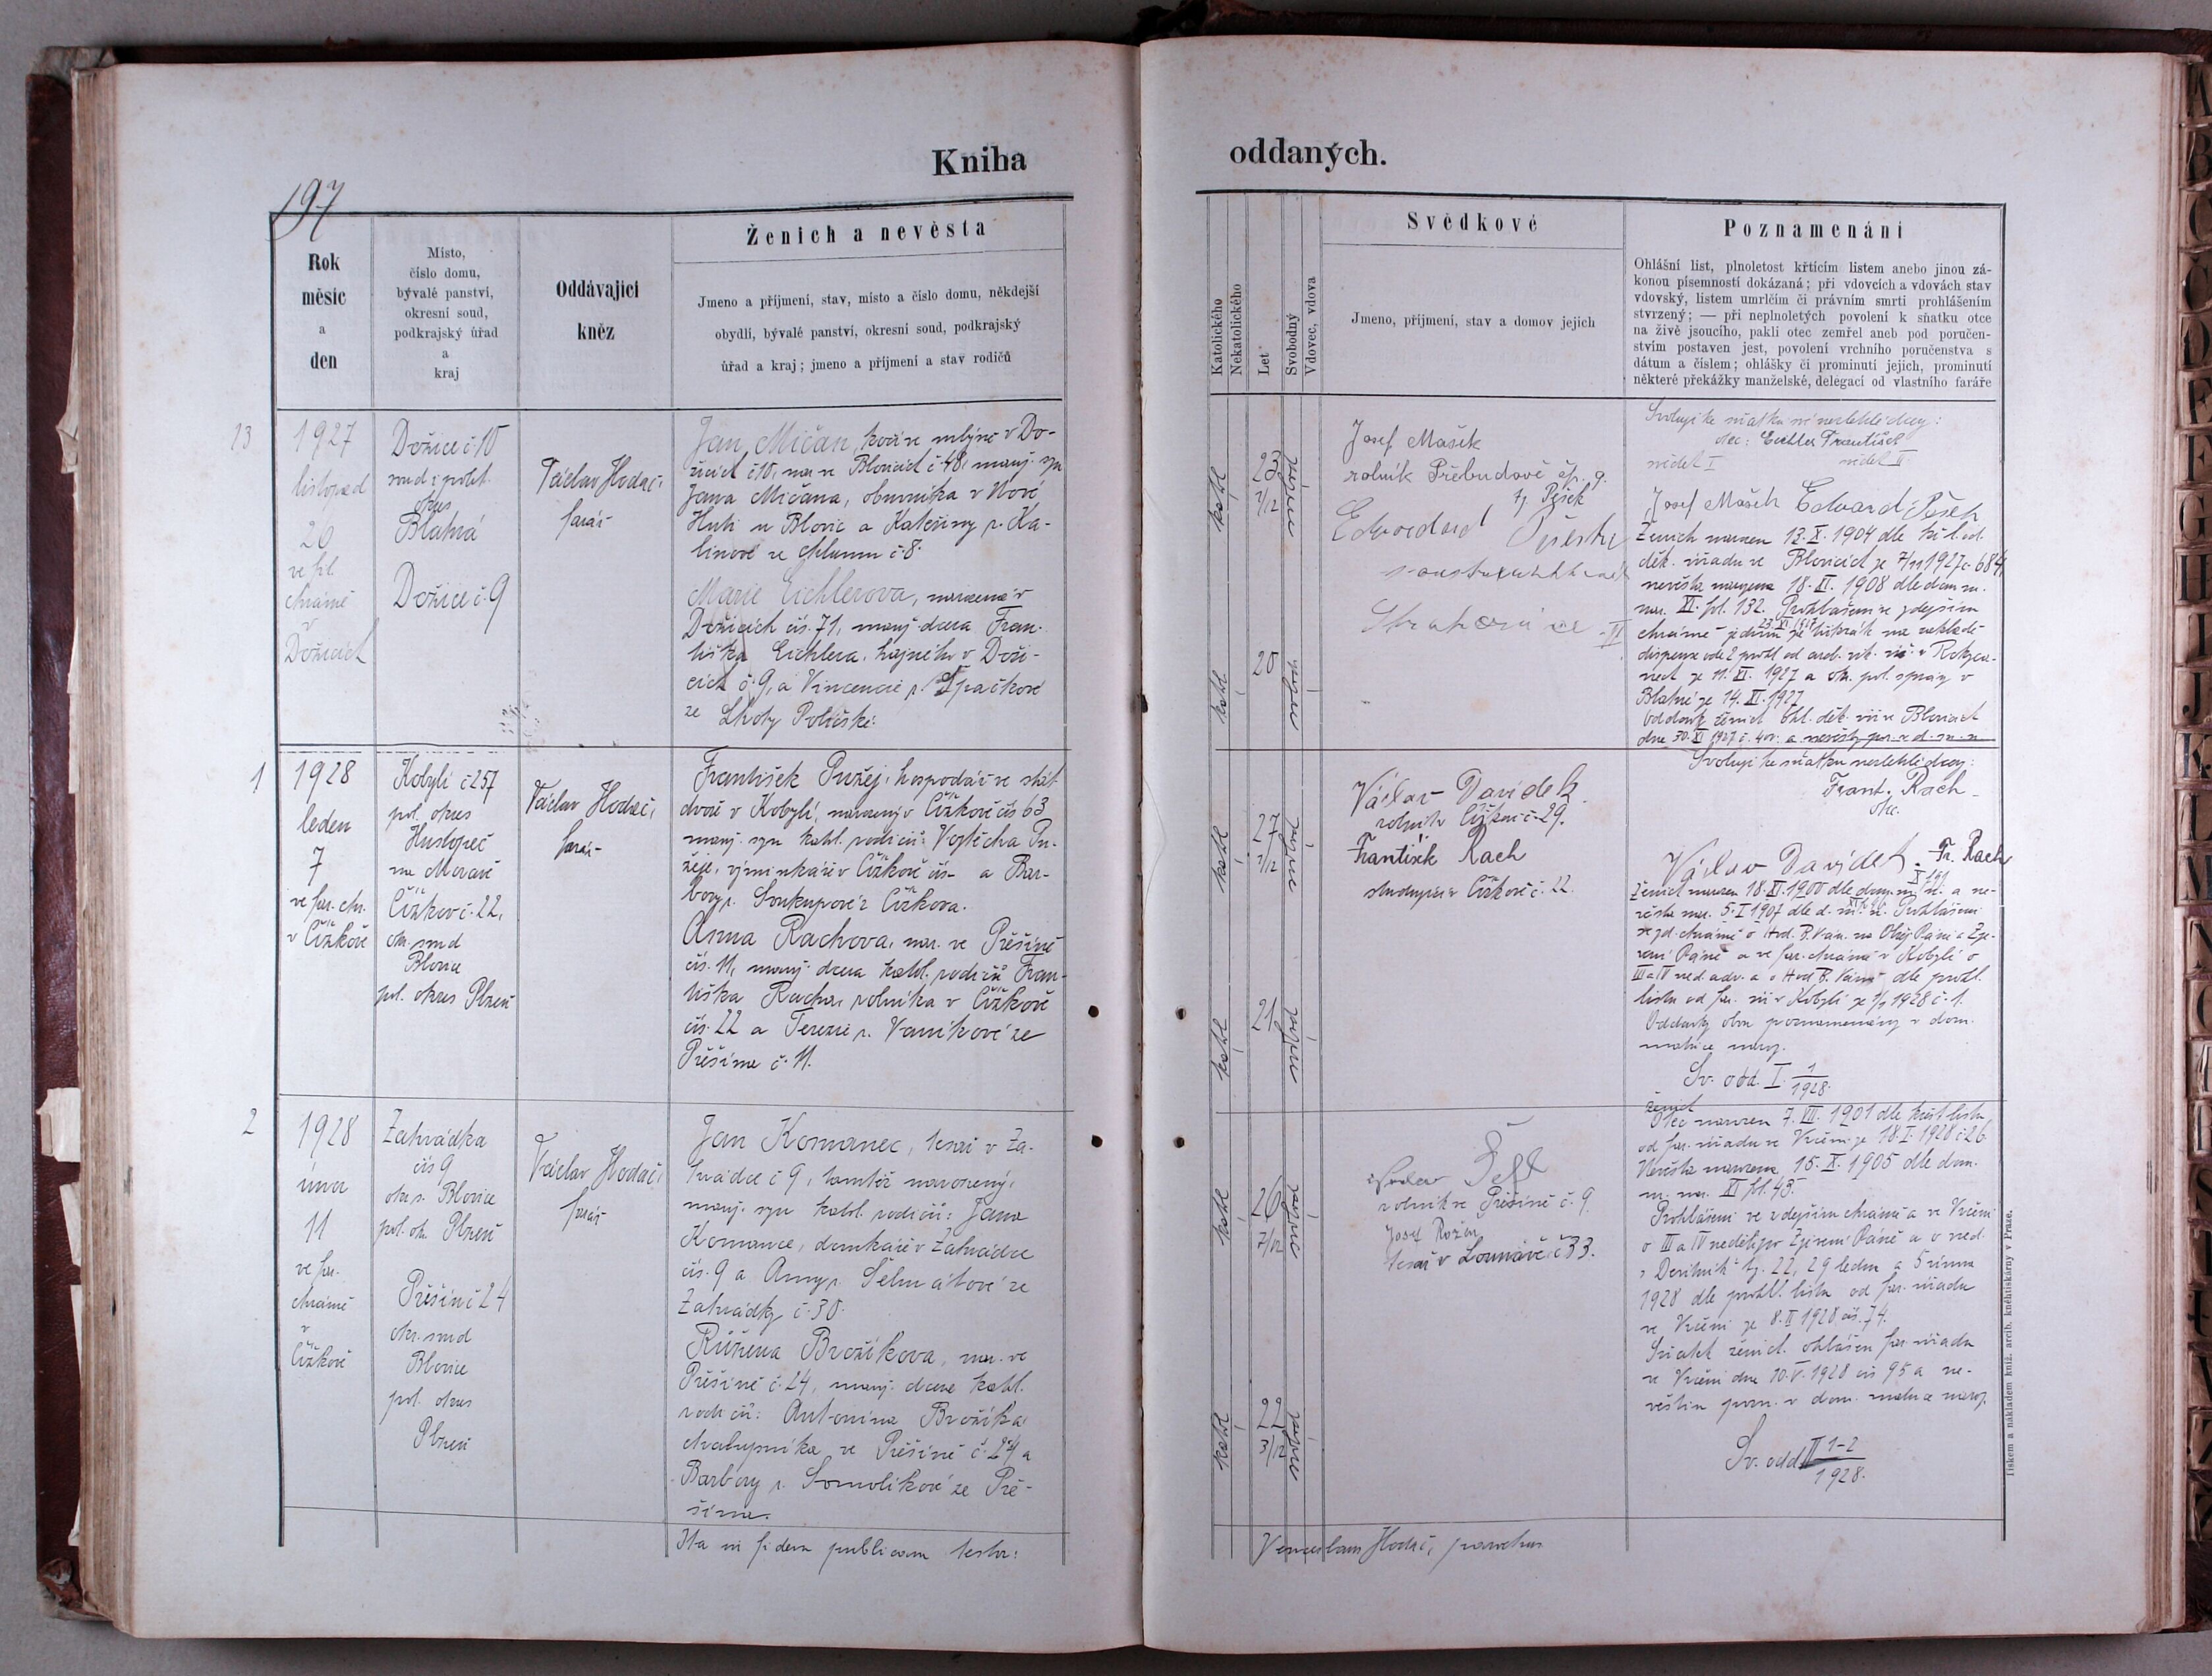 Kniha
oddaných.
197
Rok
měsíc
a
den
Místo,
číslo domu,
bývalé panství,
okresní soud,
podkrajský úřad
a
kraj
Oddávající
kněz
Ženich a nevěsta
Jmeno a příjmení, stav, místo a číslo domu, někdejší
obydlí, bývalé panství, okresní soud, podkrajský
úřad a kraj; jmeno a příjmení a stav rodičů
Katolického
Nekatolického
Let
Svobodný
Vdovec, vdova
Svědkové
Jmeno, příjmení, stav a domov jejich
Poznamenání
Ohlášní list, plnoletost křticím listem anebo jinou zá-
konou písemností dokázaná; při vdovcích a vdovách stav
vdovský, listem umrlčím či právním smrti prohlášením
stvrzený; — při neplnoletých povolení k sňatku otce
na živě jsoucího, pakli otec zemřel aneb pod poručen-
stvím postaven jest, povolení vrchního poručenstva s
dátum a číslem; ohlášky či prominutí jejich, prominutí
některé překážky manželské, delegací od vlastního faráře
13
1927
listopad
20
ve fil.
chrámě
v
Dožicích
Dožice č 10
soud i polit.
okres
Blatná
Dožice č. 9
Václav Hodač,
farář
Jan Mičan, kočí ve mlýně v Do-
žicích č 10, nar. ve Blovicích č 48, manž. syn
Jana Mičana, obuvníka v Nové
Huti u Blovic a Kateřiny r. Ka-
linové ze Chlumu č 8.
Marie Eichlerova, narozená v
Dožicích čís. 71, manž. dcera Fran-
tiška Eichlera, hajného v Doži-
cích č. 9, a Vincencie r. Špačkové
ze Lhoty
kathol.
23
7/12
svobod.
kathol.
20
svobod.
Josef Mašek
rolník Přebudově čp. 9.
tj. Pešek
Edvard
Svoluji ke sňatku své nezletilé dcery:
otec: Eichler František
svědek I svědek II
Josef Mašek Edvard Pešek
Ženich narozen 13. X. 1904 dle kř. l. od
děk. úřadu ve Blovicích ze 7/11 1927 č. 684,
nevěsta narozena 18. II. 1908 dle dom. m.
nar. XI. fol. 132. Prohlášeni ve zdejším
chrámě jednou 13. XI. 1927 na základě
dispense ode 2 prohl. od arcib. vik. úř. v Rokyca-
nech ze 11. XI. 1927 a okr. pol. správy v
Blatné ze 14. XI. 1927
Oddavky ženich. ohl. děk. úř. v Blovicích
dne 30. XI 1927 č.
1
1928
leden
7
ve far. chr.
v Čížkově
Kobylí č 257
pol. okres
Hustopeč
na Moravě
Čížkov č. 22,
okr. soud
Blovice
pol. okres Plzeň
Václav Hodač,
farář
František Pužej, hospodář ve stát.
dvoře v Kobylí, narozený v Čížkově čís 63
manž. syn kathol. rodičů: Vojtěcha Pu-
žeje, výminkáře v Čížkově čís - a Bar-
bory r. Soukupové z Čížkova.
Anna Rachova, nar. ve Přešíně
čís. 11, manž. dcera kathol. rodičů Fran-
tiška Racha, rolníka v Čížkově
čís. 22 a Terezie r. Vaníkové ze
Přešína č. 11.
kathol.
27
1/12
svobod.
kathol.
21
svobod.
Václav Davídek
rolník Čížkov č. 29.
František Rach
studující v Čížkově č. 22.
Svoluji ke sňatku nezletilé dcery:
Frant. Rach
otec.
Václav Davídek. Fr. Rach
Ženich narozen 18. XI. 1900 dle dom. m. nar. a ne-
věsta nar. 5. I 1907 dle d. m. n. Prohlášeni
ve zd. chrámě o Hod. B. Ván. na Obřez. Páně a Zje-
vení Páně a ve far. chrámě v Kobylí o
III a IV ned. adv. a o Hod B. Ván. dle prohl.
listu od far. úř. v Kobylí ze 1/1 1928 č. 1.
Oddavky obou poznamenány v dom.
matrice naroz.
Sv. odd. I. 1
1928.
2
1928
února
11
ve far.
chrámě
v
Čížkově
Zahrádka
čís 9
okr. s. Blovice
pol. okr. Plzeň
Přešín č 24
okr. soud
Blovice
pol. okres
Plzeň
Václav Hodač,
farář
Jan Komanec, tesař v Za-
hrádce č 9, tamtéž narozený,
manž. syn kathol. rodičů: Jana
Komance, domkáře v Zahrádce
čís. 9 a Anny r. Šelmátové ze
Zahrádky č. 30.
Růžena Brožíkova, nar. ve
Přešíně č. 24, manž. dcera kathol.
rodičů: Antonína Brožíka,
chalupníka ve Přešíně č. 24 a
Barbory r. Somolíkové ze Pře-
šína.
kathol.
26
7/12
svobod.
kathol.
22
3/12
svobod.
rolník ve Přešíně č. 9.
Josef Rožen
tesař v Louňově č 33.
ženich
Otec narozen 7. VII. 1901 dle křest. listu
od far. úřadu ve Vrčeni ze 18. I. 1928 č 26.
Nevěsta narozena 15. X. 1905 dle dom.
m. nar. XI fol. 45.
Prohlášeni ve zdejším chrámě a ve Vrčeni
o III a IV neděli po Zjevení Páně a o ned.
Devítník tj. 22, 29 ledna a 5 února
1928 dle prohl. listu od far. úřadu
ve Vrčeni ze 8. II 1928 čís. 74.
Sňatek ženich. ohlášen far. úřadu
ve Vrčeni dne 10. V. 1928 čís 95 a ne-
věstin pozn. v dom. matrice naroz.
Sv. odd. II 1-2
1928.
Ita in fidem publicam testor:
Venceslaus Hodač, parochus
Tiskem a nákladem kníž. arcib. knihtiskárny v Praze.